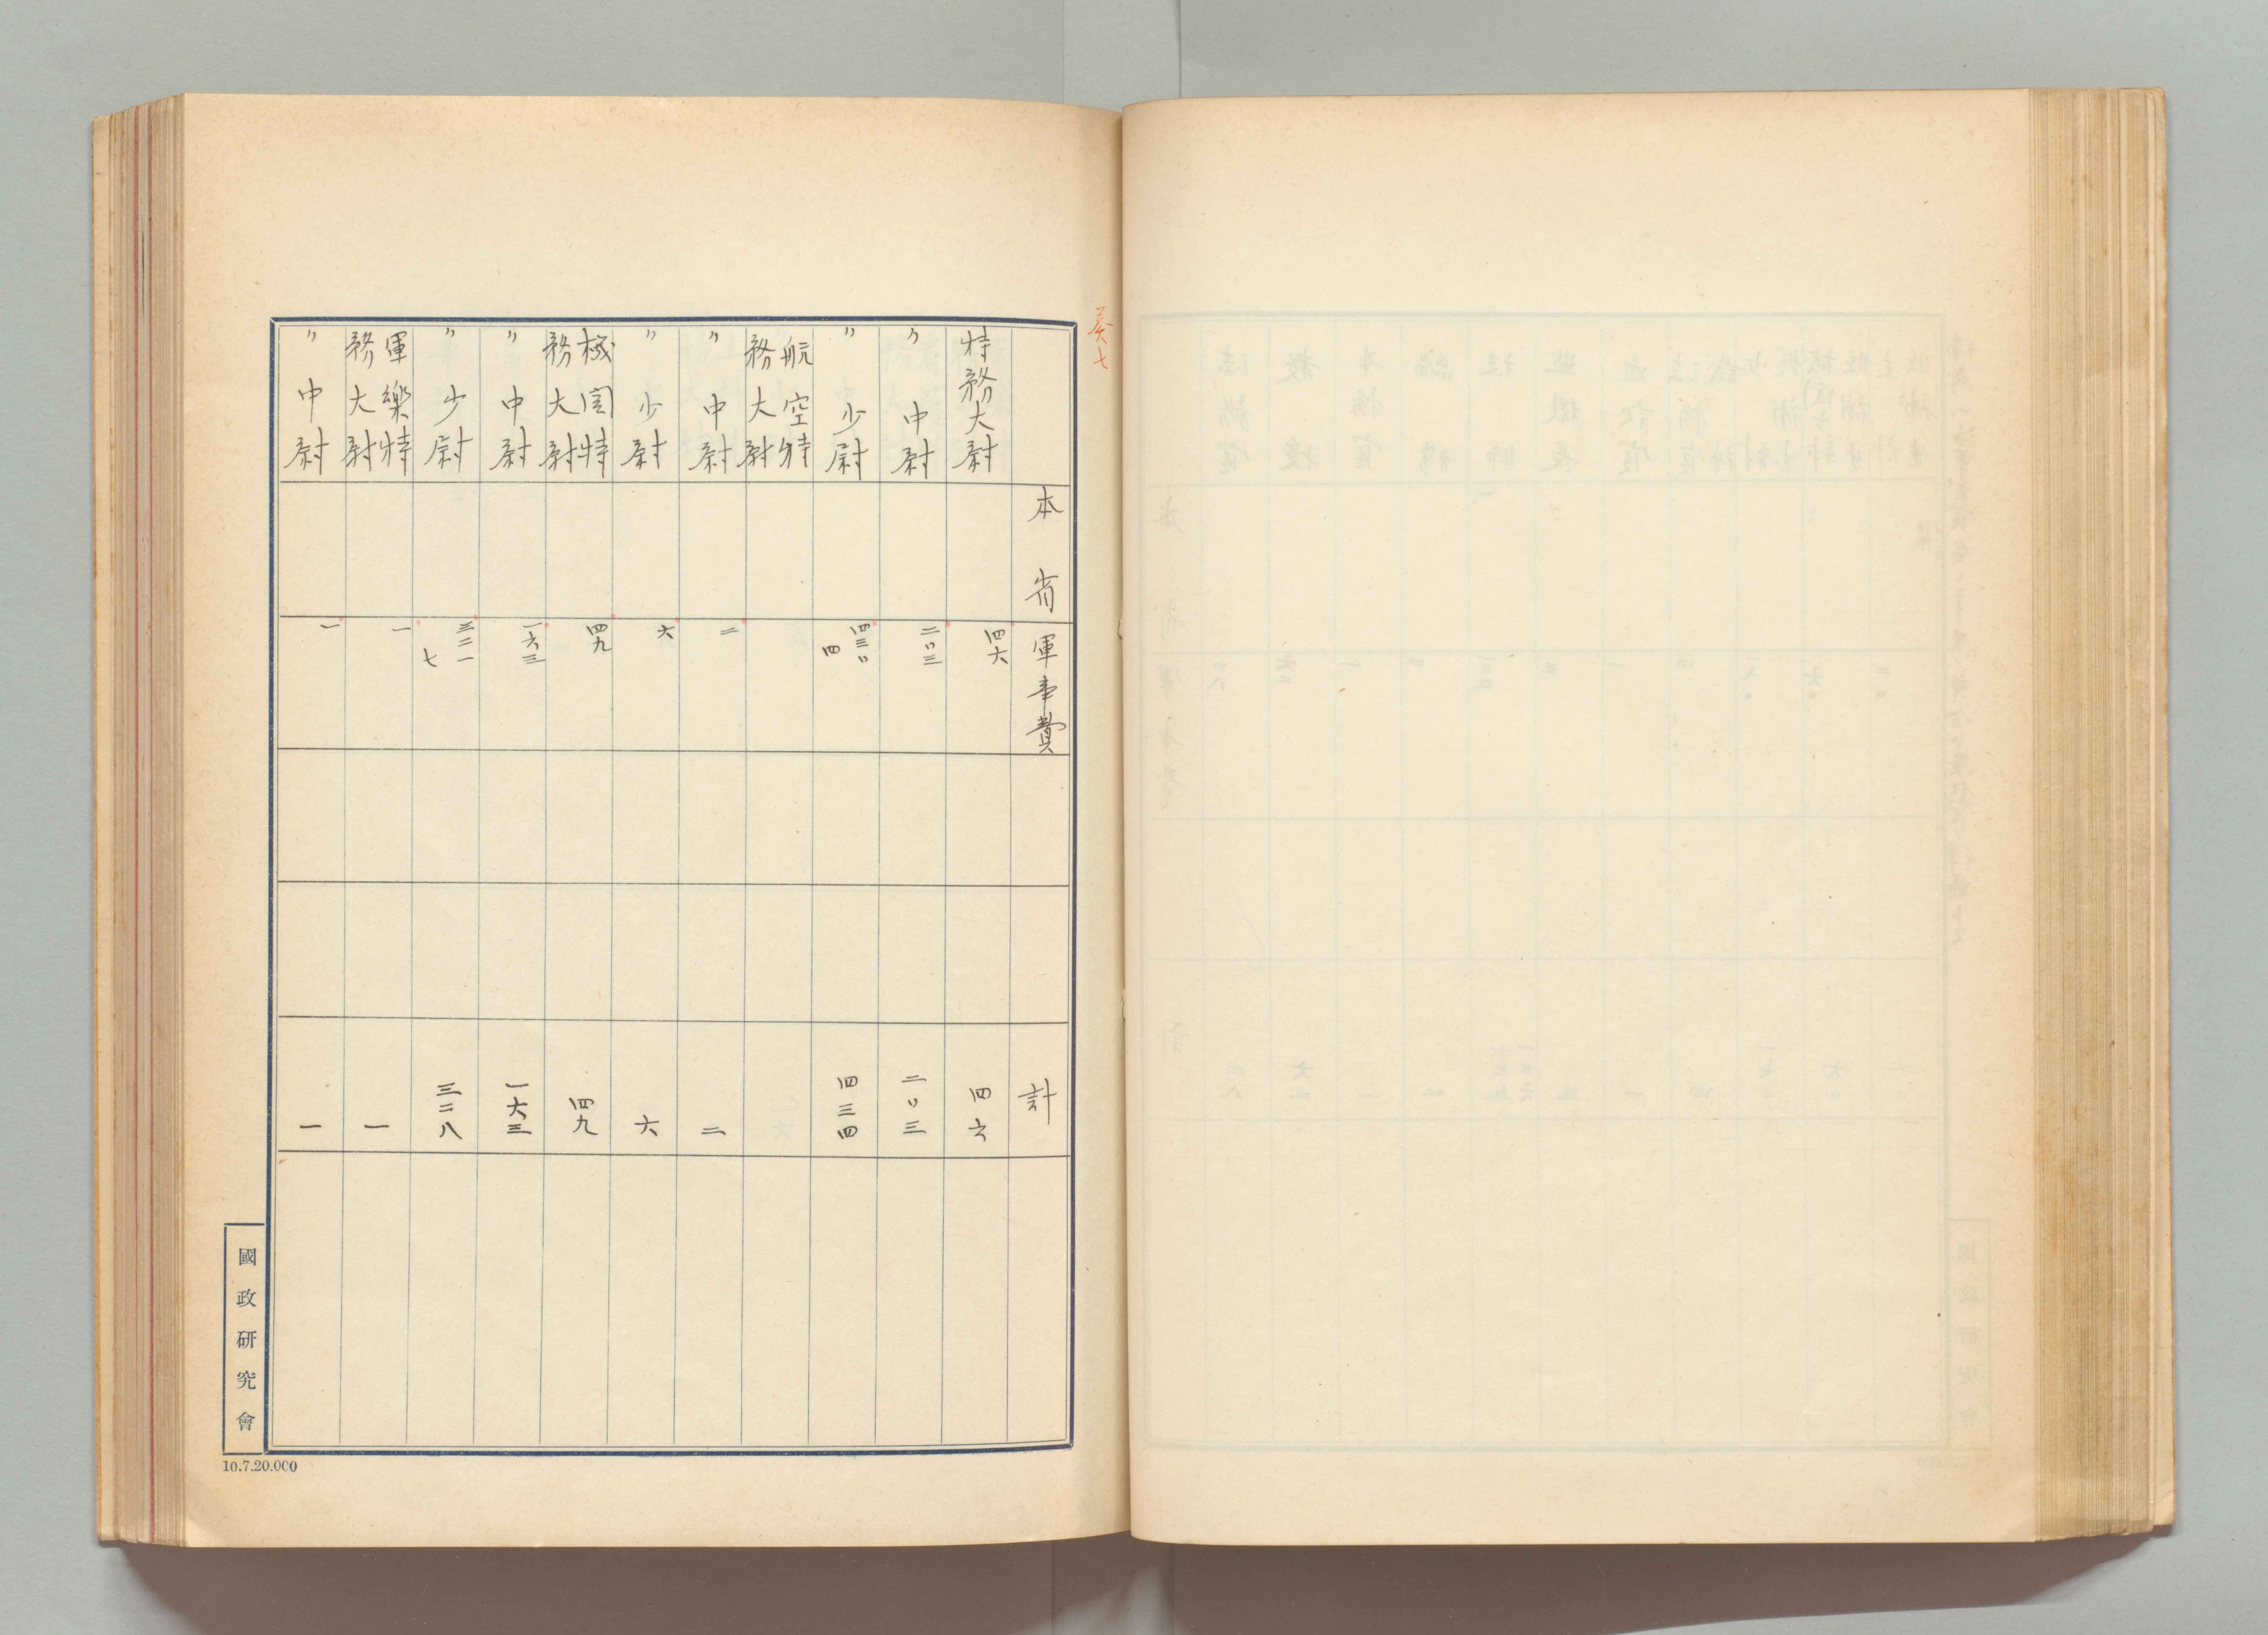 本省 軍事費 計
特務大尉 四六 四六
〃中尉 二〇三 二〇三
〃少尉 四三〇 四 四三四
航空特務大尉
〃中尉 二 二
〃少尉 六 六
機関特務大尉 四九 四九
〃中尉 一六三 一六三
〃少尉 三二一 七 三二八
軍樂特務大尉 一 一
〃中尉 一 一
國政研究會
10.7.20.000